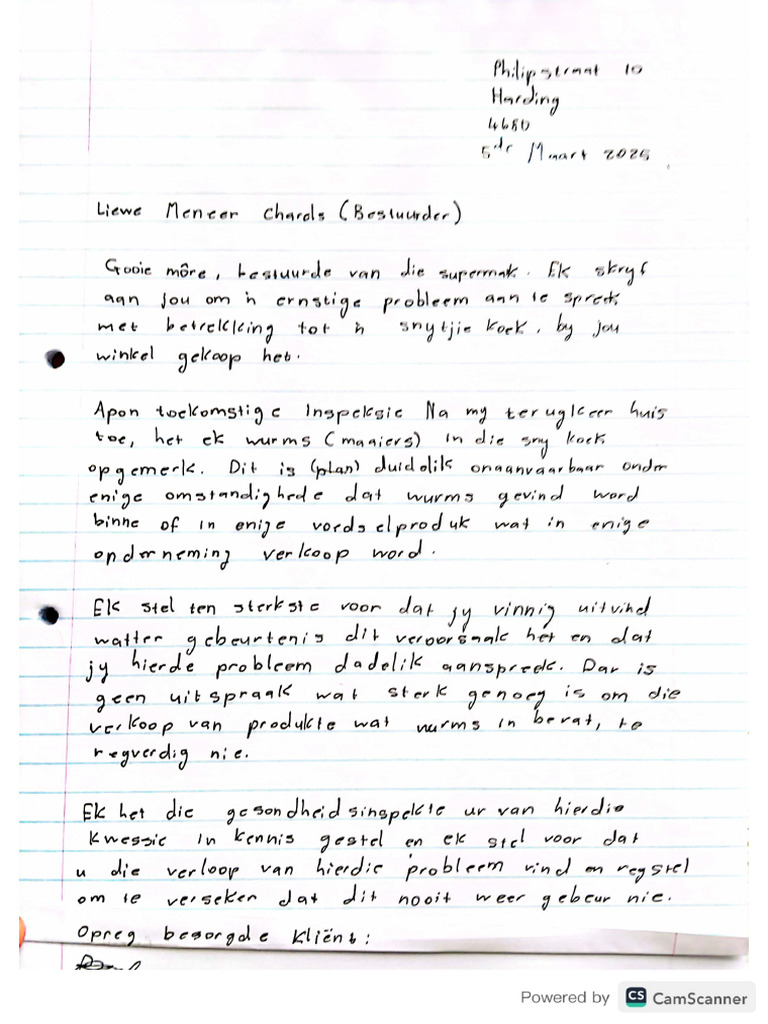 Philipstraat 10
Harding
4680
5de Maart 2025
Liewe Meneer Charols (Bestuurder)
Gooie môre, bestuurde van die supermak. Ek skryf
aan jou om 'n ernstige probleem aan te spreek
met betrekking tot 'n snytjie koek, by jou
winkel gekoop het.
Apon toekomstige Inspeksie Na my terugkeer huis
toe, het ek wurms (maaiers) In die sny koek
opgemerk. Dit is (plan) duidelik onaanvaarbaar onder
enige omstandighede dat wurms gevind word
binne of in enige voedselproduk wat in enige
onderneming verkoop word.
Ek stel ten sterkste voor dat jy vinnig uitvind
watter gebeurtenis dit veroorsaak het en dat
jy hierde probleem dadelik aanspreek. Dar is
geen uitspraak wat sterk genoeg is om die
verkoop van produkte wat wurms in bevat, te
regverdig nie.
Ek het die gesondheidsinspekteur van hierdie
kwessie In kennis gestel en ek stel voor dat
u die verloop van hierdie probleem vind en regstel
om te verseker dat dit nooit weer gebeur nie.
Opreg besorgde kliënt:
Powered by CS CamScanner